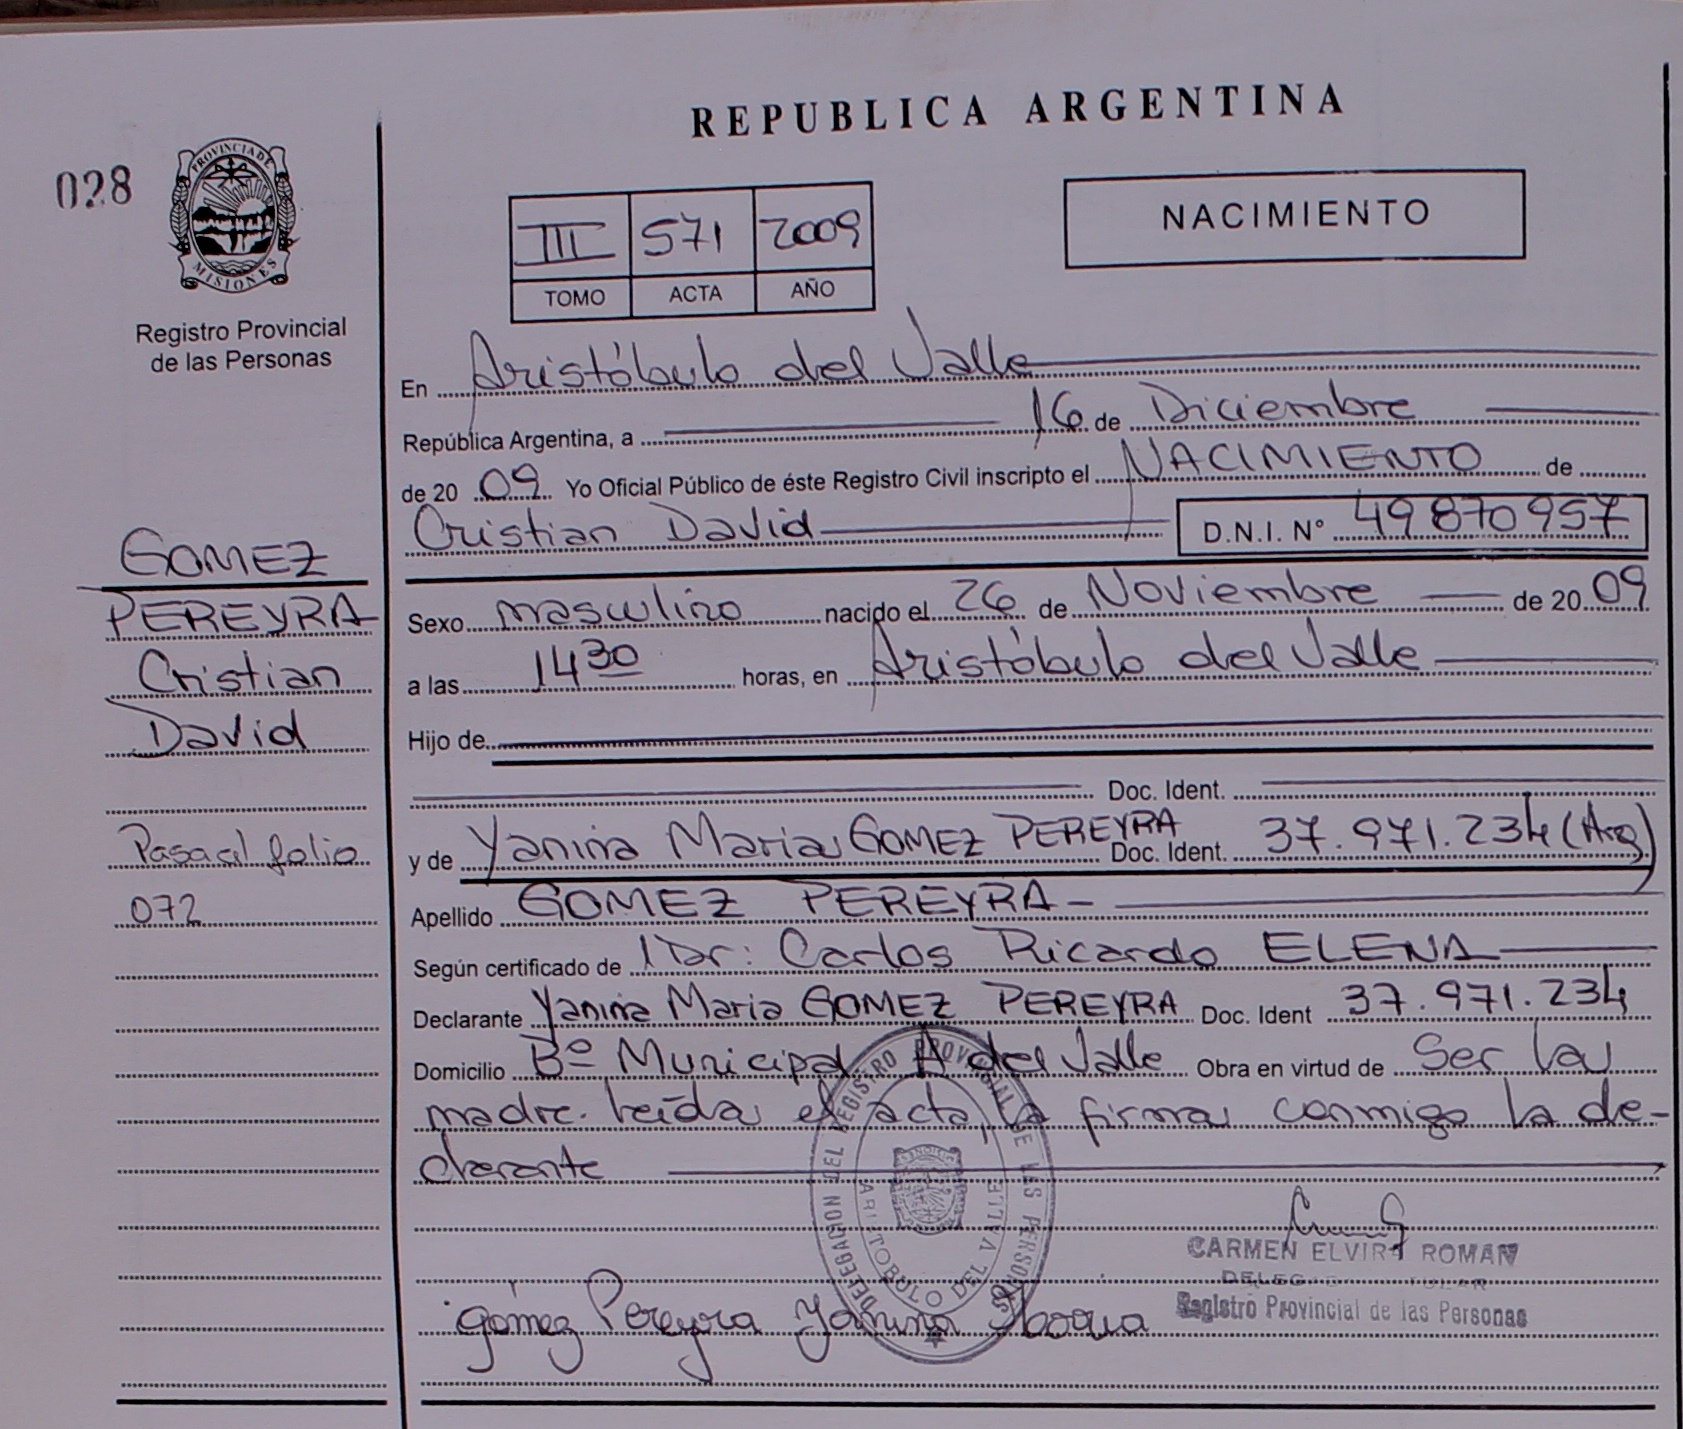 REPUBLICA ARGENTINA
028
PROVINCIA DE
MISIONES
Registro Provincial
de las Personas
III 571 2009
TOMO ACTA AÑO
NACIMIENTO
En Aristóbulo del Valle
República Argentina, a 16 de Diciembre
de 20 09 Yo Oficial Público de éste Registro Civil inscripto el NACIMIENTO de
Cristian David D.N.I. N° 49870957
GOMEZ
PEREYRA
Cristian
David
Pasa al folio
072
Sexo masculino nacido el 26 de Noviembre de 20 09
a las 14 30 horas, en Aristóbulo del Valle
Hijo de
Doc. Ident.
y de Yanina Maria GOMEZ PEREYRA Doc. Ident. 37.971.234 (Arg)
Apellido GOMEZ PEREYRA
Según certificado de Dr: Carlos Ricardo ELENA
Declarante Yanina Maria GOMEZ PEREYRA Doc. Ident 37.971.234
Domicilio Bº Municipal A del Valle Obra en virtud de Ser la
madre. leída el acta, la firma conmigo la de-
clarante
DELEGACION DEL REGISTRO PROVINCIAL DE LAS PERSONAS
ARISTOBULO DEL VALLE
CARMEN ELVIRA ROMAN
Registro Provincial de las Personas
gómez Pereyra Yanina